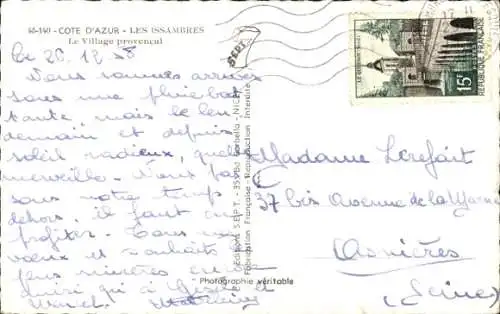 83-190 - COTE D'AZUR - LES ISSAMBRES
Le Village provençal
Le 26.12.58
Nous sommes arrivés
sous une pluie bat
tante, mais le len
demain et depuis
soleil radieux, quelle
merveille. Nous passons
notre temps
dehors, il faut en
profiter. Tous nos
vœux et souhaits les
plus sincères
ainsi qu'à Gisèle et
SEPT
Editions S.E.P.T. - 35, Gambetta - NICE
Fabrication Française - Reproduction interdite
Photographie véritable
LE QUESNOY NORD
15F
REPUBLIQUE FRANÇAISE
Madame Lerefait
37 bis Avenue de la Marne
Asnières
(Seine)